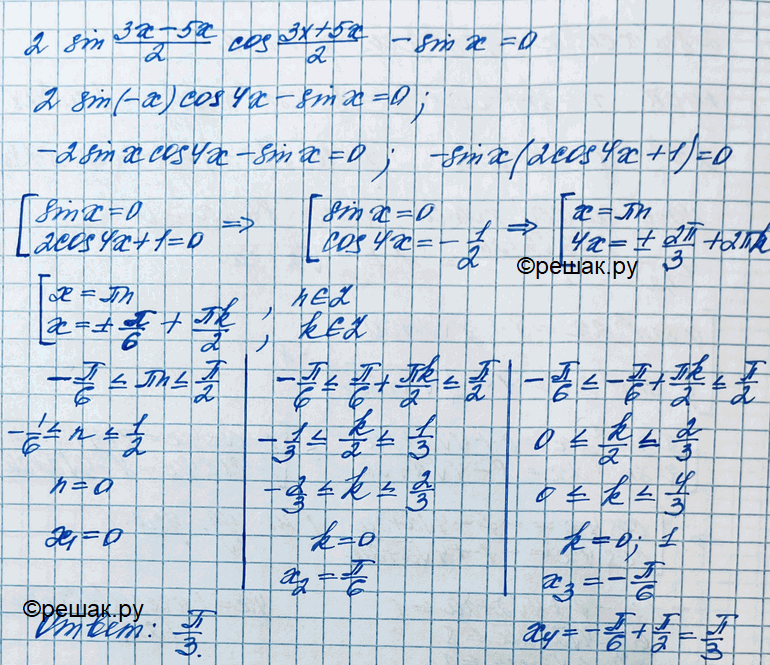 2 sin (3x-5x)/2 cos (3x+5x)/2 - sin x = 0
2 sin(-x) cos 4x - sin x = 0;
-2 sin x cos 4x - sin x = 0; -sin x (2cos 4x + 1) = 0
[ sin x = 0 => [ sin x = 0 => [ x = πn
2cos 4x + 1 = 0 cos 4x = -1/2 4x = ± 2π/3 + 2πk
©решак.ру
[ x = πn, n∈Z
x = ± π/6 + πk/2, k∈Z
-π/6 ≤ πn ≤ π/2
-1/6 ≤ n ≤ 1/2
n = 0
x₁ = 0
-π/6 ≤ π/6 + πk/2 ≤ π/2
-1/3 ≤ k/2 ≤ 1/3
-2/3 ≤ k ≤ 2/3
k = 0
x₂ = π/6
-π/6 ≤ -π/6 + πk/2 ≤ π/2
0 ≤ k/2 ≤ 2/3
0 ≤ k ≤ 4/3
k = 0; 1
x₃ = -π/6
x₄ = -π/6 + π/2 = π/3
©решак.ру
Ответ: π/3.